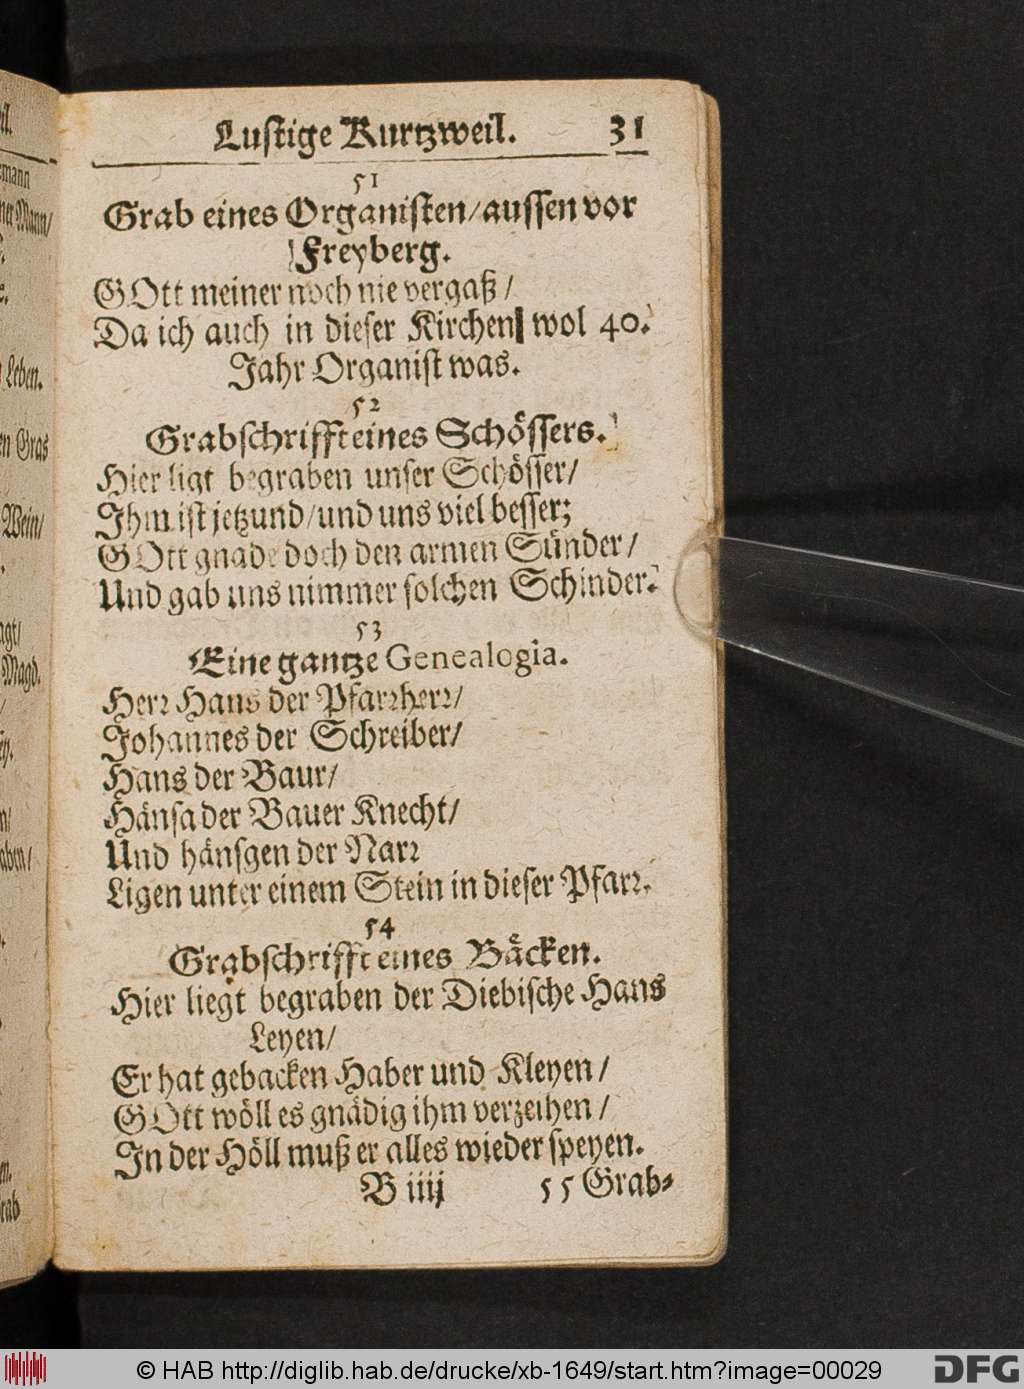 Lustige Kurtzweil. 31
51
Grab eines Organisten/aussen vor
Freyberg.
GOtt meiner noch nie vergaß/
Da ich auch in dieser Kirchen wol 40.
Jahr Organist was.
52
Grabschrifft eines Schössers.
Hier ligt begraben unser Schösser/
Ihm ist jetzund/und uns viel besser;
GOtt gnade doch den armen Sünder/
Und gab uns nimmer solchen Schinder.
53
Eine gantze Genealogia.
Herr Hans der Pfarrherr/
Johannes der Schreiber/
Hans der Baur/
Hänsa der Bauer Knecht/
Und hänsgen der Narr
Ligen unter einem Stein in dieser Pfarr.
54
Grabschrifft eines Bäcken.
Hier liegt begraben der Diebische Hans
Leyen/
Er hat gebacken Haber und Kleyen/
GOtt wöll es gnädig ihm verzeihen/
In der Höll muß er alles wieder speyen.
B iiij 55 Grab-
Leben.
Gras
Wein/
Magd.
© HAB http://diglib.hab.de/drucke/xb-1649/start.htm?image=00029
DFG